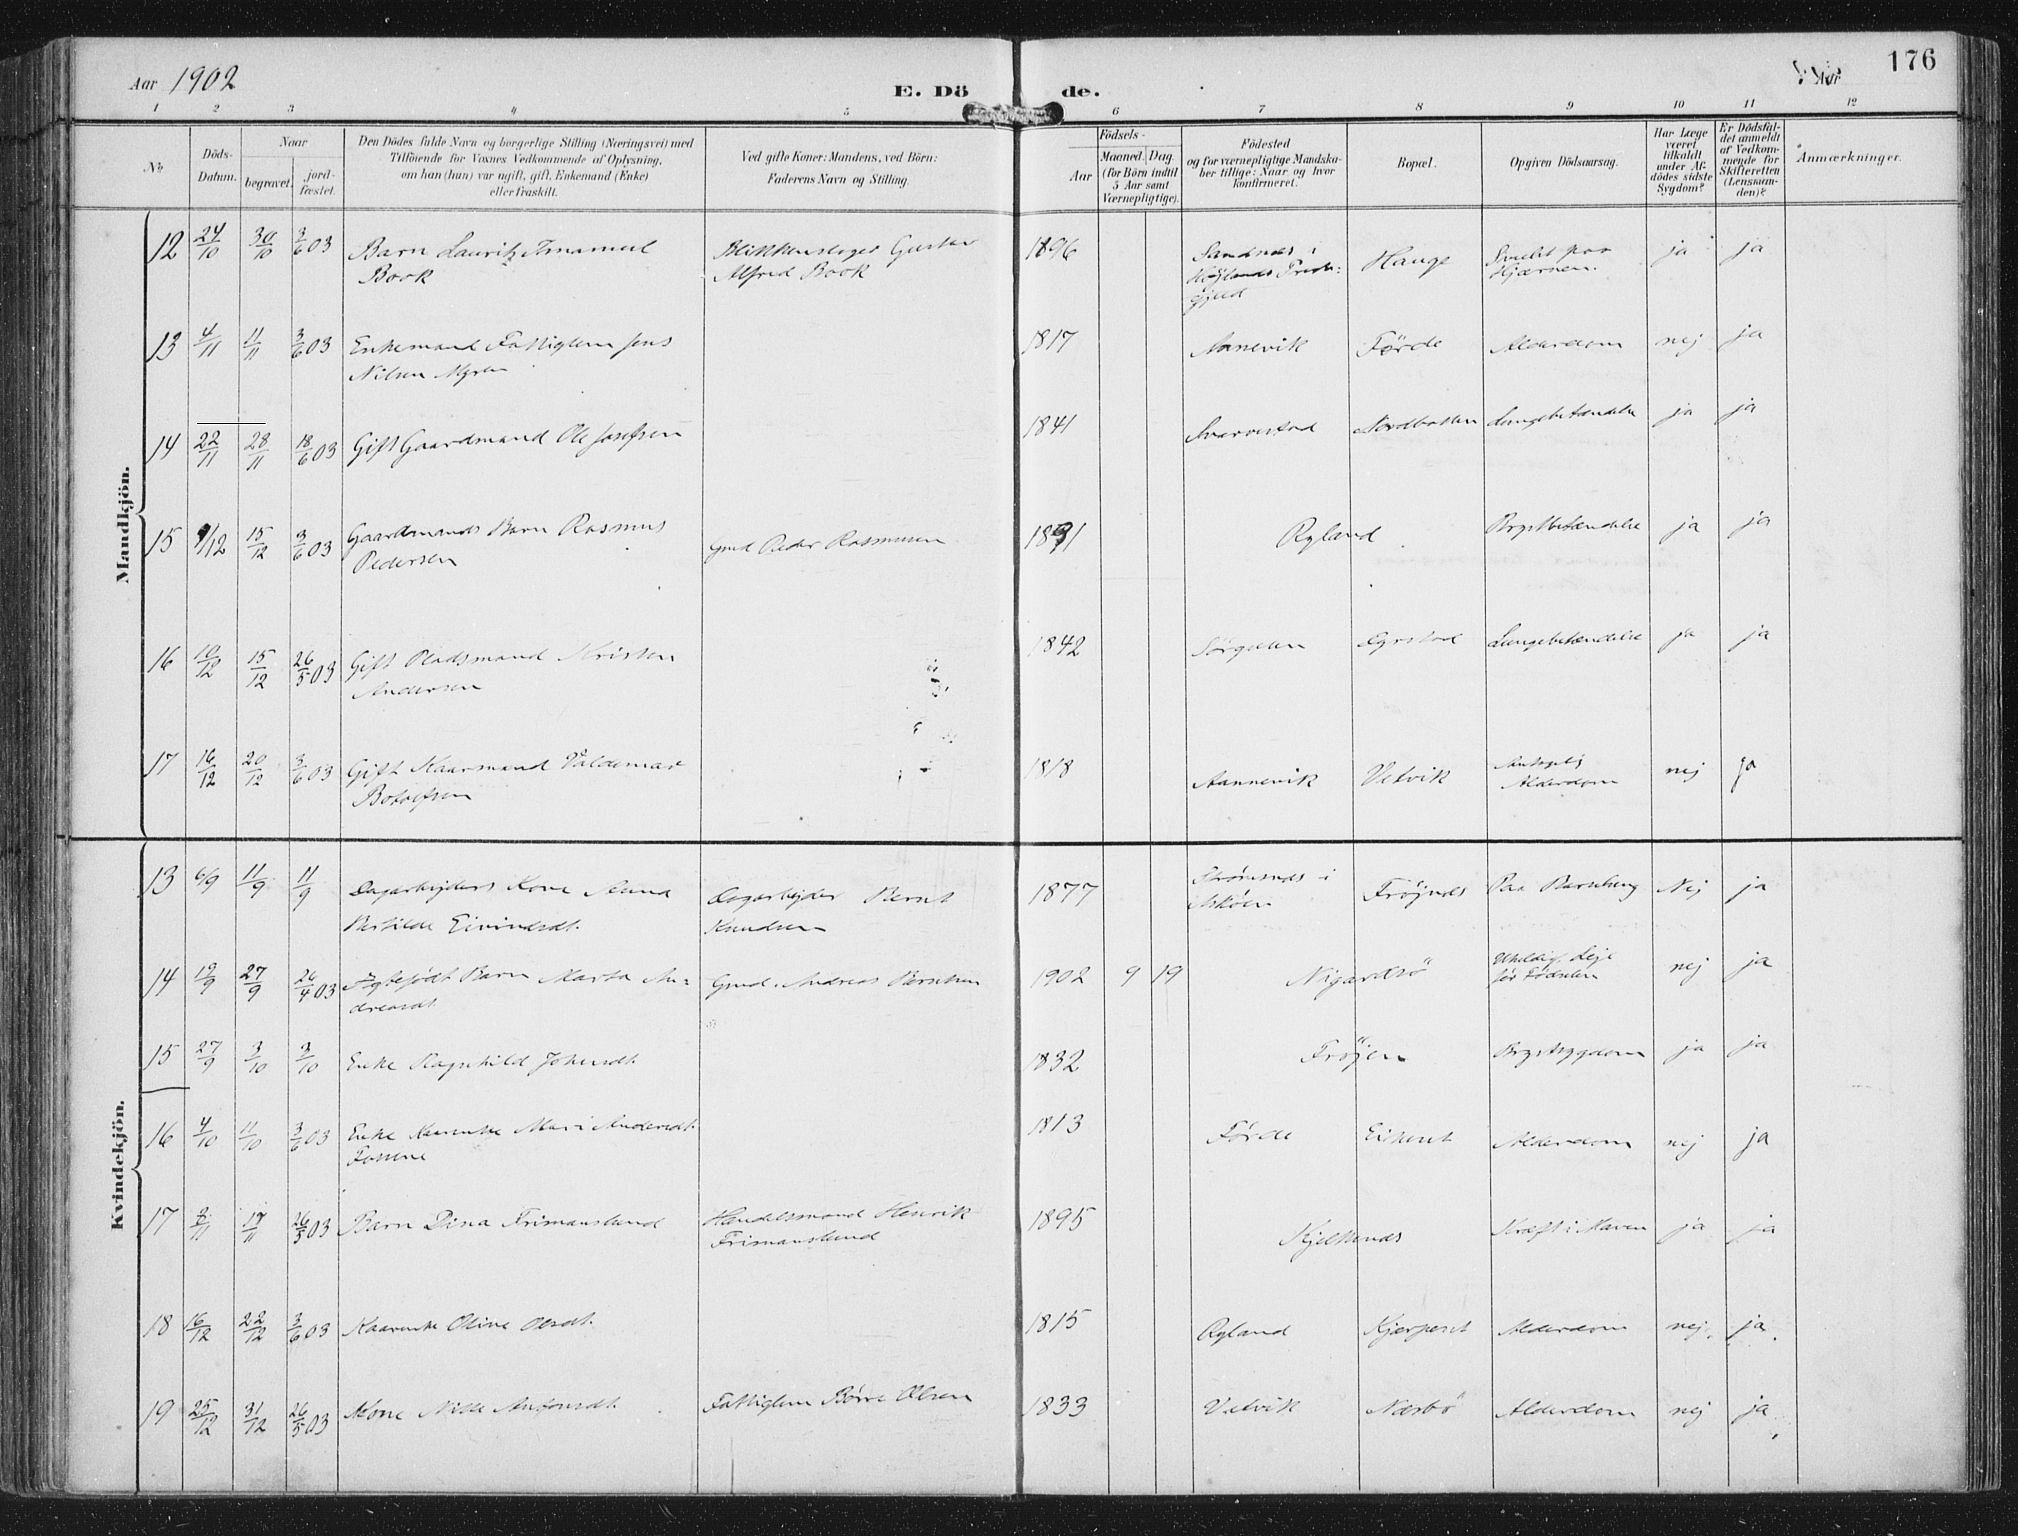 Aar 1902
E. Dö de.
Aar
176
1 2 3 4 5 6 7 8 9 10 11 12
No
Döds-Datum.
Naar
begravet.
jord-fæstet.
Den Dödes fulde Navn og borgerlige Stilling (Næringsvei) med
Tilföiende for Voxnes Vedkommende af Oplysning,
om han (hun) var ugift, gift, Enkemand (Enke)
eller fraskilt.
Ved gifte Koner: Mandens, ved Börn:
Faderens Navn og Stilling.
Födsels-
Aar
Maaned. Dag.
(for Börn indtil
5 Aar samt
Værnepligtige).
Födested
og for værnepligtige Mandska-
ber tillige: Naar og hvor
konfirmeret.
Bopæl.
Opgiven Dödsaarsag.
Har Læge
været
tilkaldt
under Af-
dödes sidste
Sygdom?
Er Dödsfal-
det anmeldt
af Vedkom-
mende for
Skifteretten
(Lensman-
den)?
Anmærkninger.
Mandkjön.
12 24/10 30/10 3/6 03 Barn Lauritz Immanuel Blikkenslager Gustav 1896 Sandnes i Hauge Svulst paa ja ja
Book Alfred Book Höylands Præste= Hjærnen.
gjeld
13 4/11 11/11 3/6 03 Enkemand Fattiglem Jens 1817 Aanevik Förde Alderdom nej ja
Nilsen Myren
14 22/11 28/11 18/6 03 Gift Gaardmand Ole Josefsen 1841 Svarvestad Nordbotten Lungebetændelse ja ja
15 9/12 15/12 3/6 03 Gaardmands Barn Rasmus Gmd Peder Rasmusen 1891 Ryland Brystbetændelse ja ja
Pedersen
16 10/12 15/12 26/5 03 Gift Pladsmand Kristen 1842 Sörgulen Ægrstad Lungebetændelse ja ja
Andersen
17 16/12 20/12 3/6 03 Gift Kaarmand Valdemar 1818 Aannevik Vetvik Antagelig nej ja
Botolfsen Alderdom
Kvindekjön.
13 6/9 11/9 11/9 Dagarbejders Kone Anna Dagarbejder Bernt 1877 Strömsnes i Fröjnes Paa Barnseng Nej ja
Bertilde Eivindsdt. Knudsen Asköen
14 19/9 27/9 26/4 03 Ægtefödt Barn Marta An= Gmd. Andreas Berntsen 1902 9 19 Nigardsö Uheldig Leje nej ja
dreasdt. för Födselen
15 27/9 3/10 3/10 Enke Ragnhild Johansdt. 1832 Fröjen Brystsygdom ja ja
16 4/10 11/10 3/6 03 Enke Karenke Mari Andersdt. 1813 Förde Eikeset Alderdom nej ja
17 8/11 17/11 26/5 03 Barn Dina Frimanslund Handelsmand Henrik 1895 Kjelkenes Kræft i Maven ja ja
Frimanslund
18 16/12 22/12 3/6 03 Kaarenke Oline Olsdt. 1815 Ryland Kjerpeset Alderdom nej. ja.
19 25/12 31/12 26/5 03 Kone Nille Antonsdt. Fattiglem Börre Olsen 1833 Vetvik Næsbö Alderdom nej ja